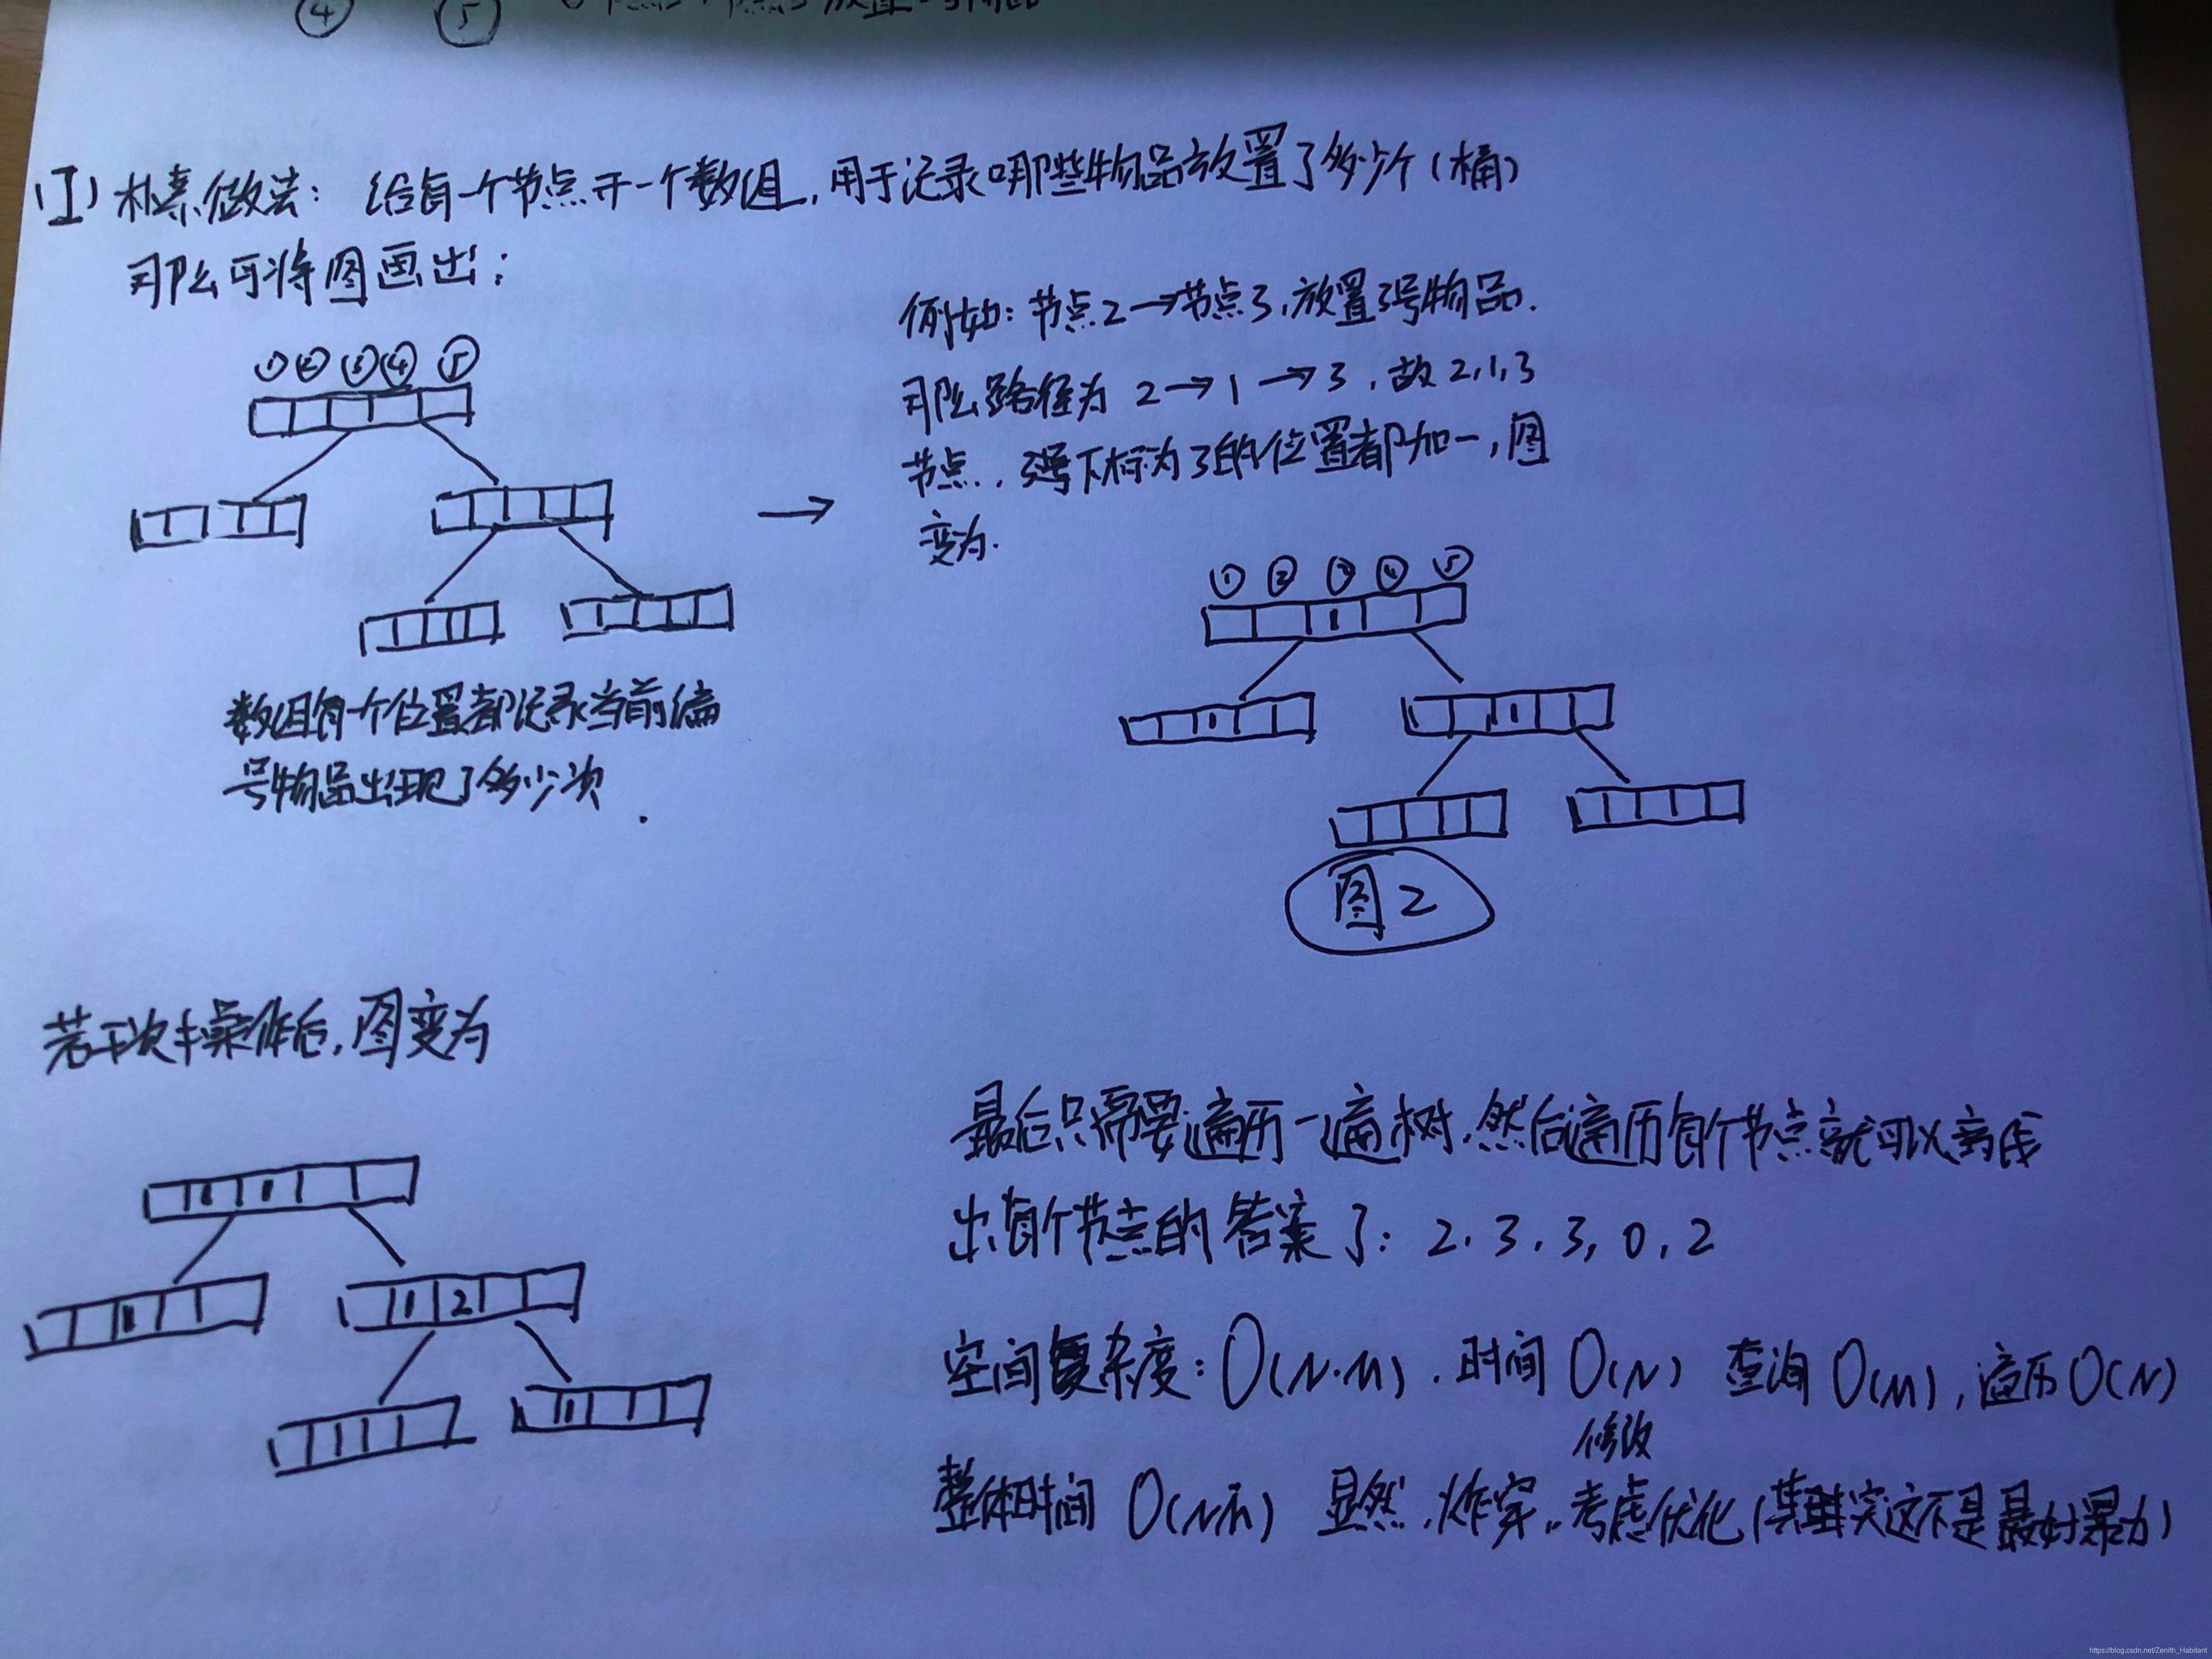 ④ ⑤
(I) 朴素做法：给每一个节点开一个数组，用于记录哪些物品放置了多少个（桶）
那么可将图画出：
① ② ③ ④ ⑤
数组每一个位置都记录当前编
号物品出现了多少次
例如：节点2→节点3，放置3号物品.
那么路径为 2→1→3，故2,1,3
节点，下标为3的位置都加一，图
变为.
① ② ③ ④ ⑤
1
1
1
图2
若干次操作后，图变为
1 1
1
1 2
1
最后只需要遍历一遍树，然后遍历每个节点就可以离线
出每个节点的答案了：2, 3, 3, 0, 2
空间复杂度：O(N·M)，时间 O(N) 查询 O(M)，遍历 O(N)
修改
整体时间 显然，炸穿，考虑优化（其实这不是最好暴力）
https://blog.csdn.net/Zenith_Habitant